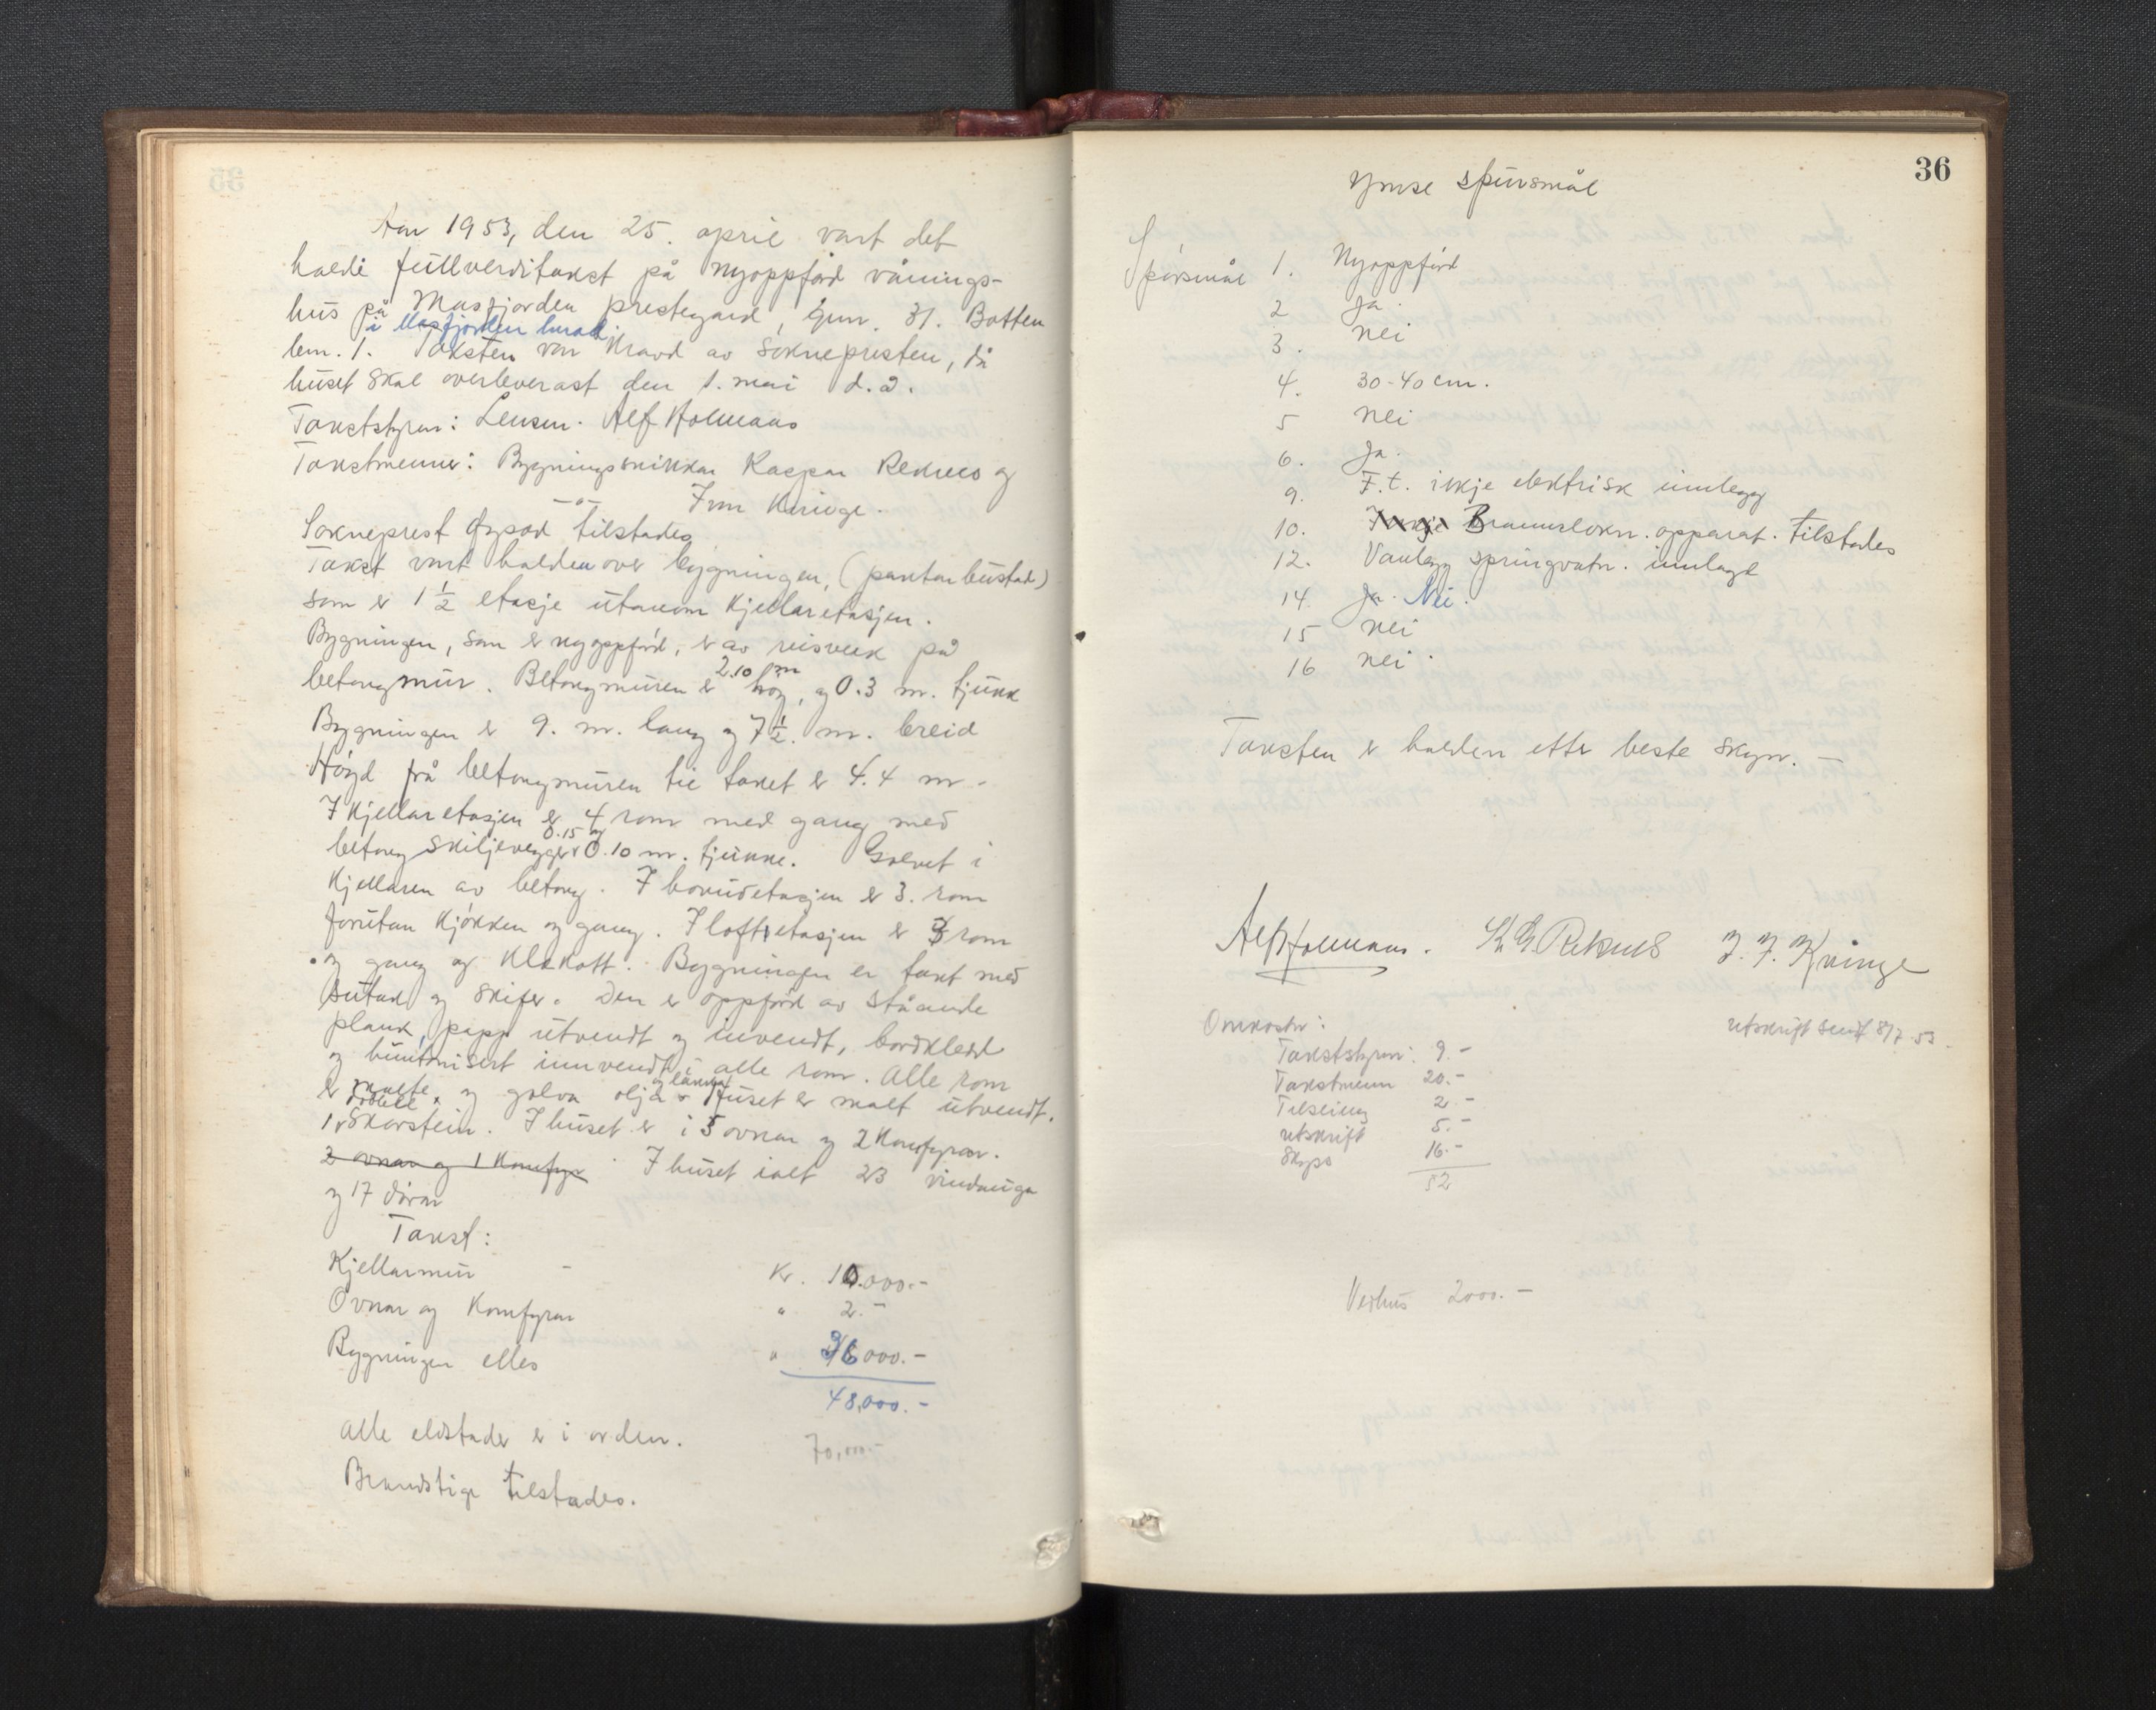 Aar 1953, den 25. april vart det
haldi fullverditakst på nyoppförd vånings-
hus på Masfjorden prestegard, Gnr. 31. Botten
i Masfjorden herad.
bnr. 1. Taksten var kravd av Soknepresten, då
huset skal overleverast den 1. mai d.å.
Takststyrar: Lensm. Alf Holmaas
Takstmenner: Bygningssnikkar Kaspar Reknes og
Ivar Kvinge.
—"—
Sokneprest tilstades
Takst vart halden over bygningen, (prestar bustad)
som er 1 ½ etasje utanom Kjellaretasjen.
Bygningen, som er nyoppförd, er av reisverk på
betongmur. Betongmuren er 2.10 m hög, og 0.3 m. tjukk
Bygningen er 9. m. lang og 7 ½. m. breid
Högd frå betongmuren til taket er 4.4 m -
I Kjellaretasjen er 4 rom med gang med
betong skiljevegger 0.15 og 0.10 m. tjukke. Golvet i
Kjellaren av betong. I hovudetasjen er 3. rom
forutan Kjökken og gang. I loftsetasjen er 3 rom
og gang og Klekott. Bygningen er takt med
sutak og skifer. Den er oppförd av ståande
plank, papp utvendt og invendt, bordkledd
og huntonisert innvendt i alle rom. Alle rom
er malte, og golva olja og lakka. Huset er malt utvendt.
1 dobbel Skorstein. I huset er i 5 ovnar og 2 Komfyrar.
2 ovnar og 1 Komfyr. I huset ialt 23 vindauga
og 17 dörar
Takst:
Kjellarmur - Kr. 10.000.-
Ovnar og Komfyrar " 2.-
Bygningen elles " 36000.-
48,000.-
70,000.-
Alle eldstader er i orden.
Brandstige tilstades.
36
Ymse spursmål
Spörsmål 1. Nyoppförd
2 Ja.
3. Nei
4. 30-40 cm.
5 Nei
6. Ja.
9. F.t. ikkje elektrisk innlegg
10. Brannslokn. apparat. tilstades
12. Vanlegg springvatn. innlagt
14. Ja. Nei.
15 Nei
16 Nei.
Taksten er halden etter beste skyn. —
Alf Holmaas. K. G. Reknes I. I. Kvinge
Omkostn:
utskrift sendt 8/7 53.
Takststyrar: 9.-
Takstmenn 20.-
Tilseiing 2.-
utskrift 5.-
Skyss 16.-
52
Vedhus 2000.-